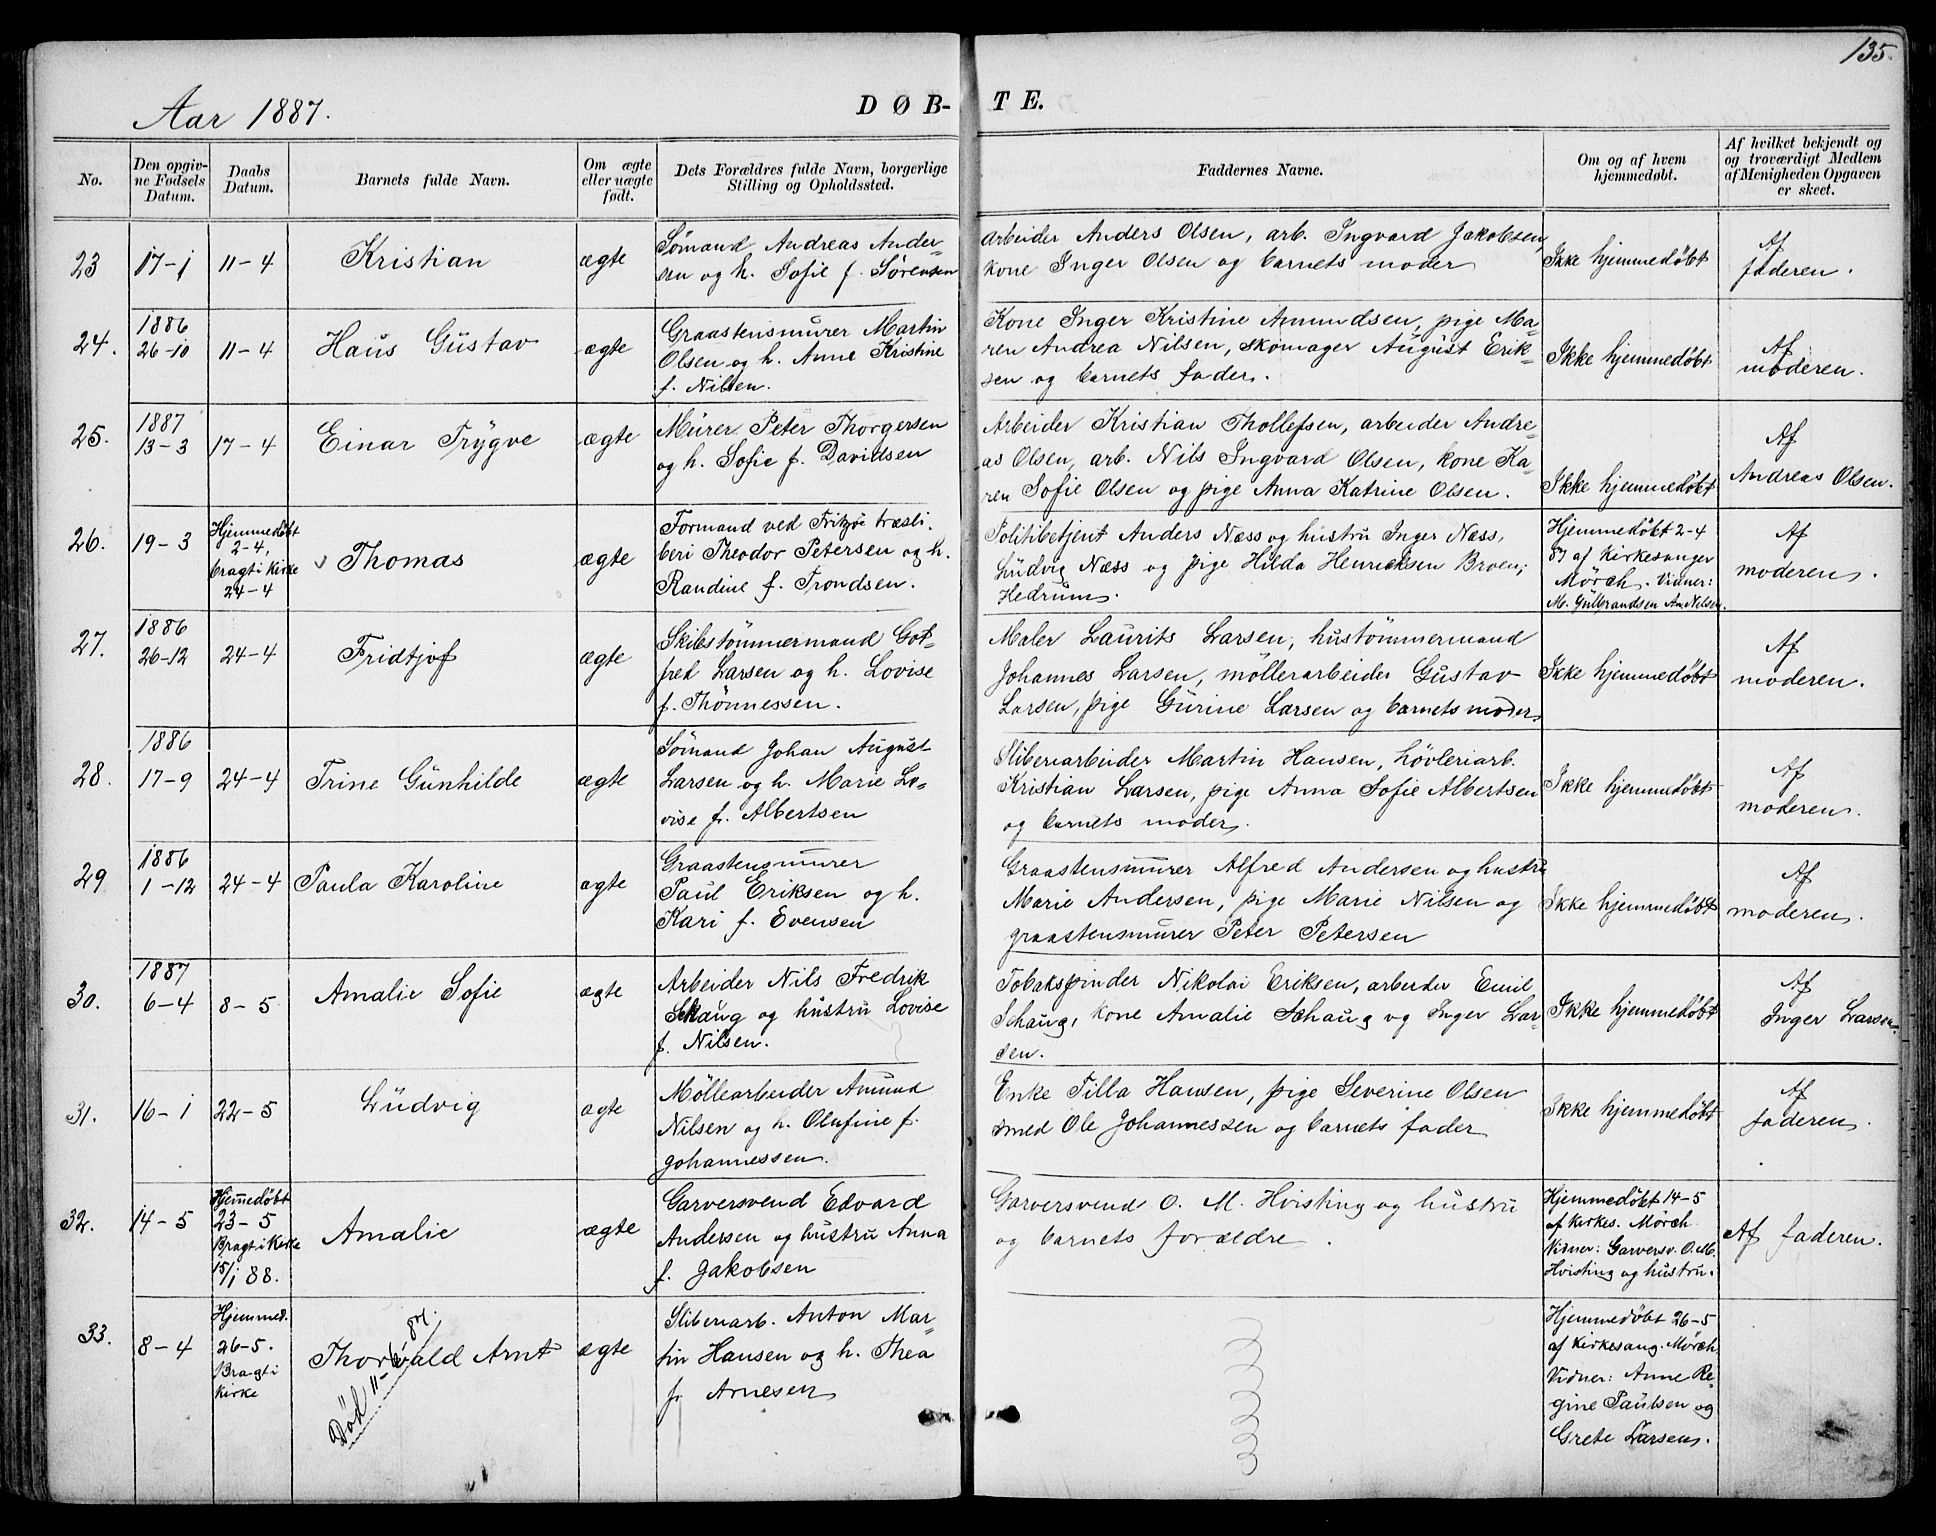 135.
Aar 1887.
DØB-
TE.
No.
Den opgiv-
ne Fødsels
Datum.
Daabs
Datum.
Barnets fulde Navn.
Om ægte
eller uægte
født.
Dets Forældres fulde Navn, borgerlige
Stilling og Opholdssted.
Faddernes Navne.
Om og af hvem
hjemmedøbt.
Af hvilket bekjendt og
og troværdigt Medlem
af Menigheden Opgaven
er skeet.
23
17-1
11-4
Kristian
ægte
Sømand Andreas Ander-
sen og h. Sofie f. Sørensen
Arbeider Anders Olsen, arb. Ingvard Jakobsen,
kone Inger Olsen og barnets moder
Ikke hjemmedøbt
Af
faderen.
24.
1886
26-10
11-4
Hans Gustav
ægte
Graastensmurer Martin
Olsen og h. Anne Kristine
f. Nilsen.
Kone Inger Kristine Amundsen, pige Ma-
ren Andrea Nilsen, skomager August Erik-
sen og barnets fader.
Ikke hjemmedøbt
Af
moderen.
25.
1887
13-3
17-4
Einar Trygve
ægte
Murer Peter Thorgersen
og h. Sofie f. Davidsen
Arbeider Kristian Thollefsen, arbeider Andre-
as Olsen, arb. Nils Ingvard Olsen, kone Ka-
ren Sofie Olsen og pige Anna Katrine Olsen.
Ikke hjemmedøbt
Af
Andreas Olsen.
26.
19-3
Hjemmedøbt
2-4,
bragt i kirke
24-4
Thomas
ægte
Formand ved Fritzøe træsli-
beri Theodor Petersen og h.
Randine f. Trondsen.
Politibetjent Anders Næss og hustru Inger Næss,
Ludvig Næss og pige Hilda Henriksen Broen,
Hedrum.
Hjemmedøbt 2-4
87 af kirkesanger
Mörch. Vidner:
M. Gulbrandsen Am Nilsen.
Af
moderen.
27.
1886
26-12
24-4
Fridtjof
ægte
Skibstømmermand Got-
fred Larsen og h. Lovise
f. Thönnessen.
Maler Laurits Larsen, hustømmermand
Johannes Larsen, möllerarbeider Gustav
Larsen, pige Gurine Larsen og barnets moder
Ikke hjemmedøbt
Af
moderen.
28.
1886
17-9
24-4
Trine Gunhilde
ægte
Sömand Johan August
Larsen og h. Marie Lo-
vise f. Albertsen
Sliberiarbeider Martin Hansen, hövleriarb.
Kristian Larsen, pige Anna Sofie Albertsen
og barnets moder.
Ikke hjemmedøbt
Af
moderen.
29
1886
1-12
24-4
Paula Karoline
ægte
Graastensmurer
Paul Eriksen og h.
Kari f. Evensen
Graastensmurer Alfred Andersen og hustru
Marie Andersen, pige Marie Nilsen og
graastensmurer Peter Petersen
Ikke hjemmedøbt
Af
moderen.
30.
1887
6-4
8-5
Amalie Sofie
ægte
Arbeider Nils Fredrik
Schaug og hustru Lovise
f. Nilsen.
Tobakspinder Nikolai Eriksen, arbeider Emil
Schaug, kone Amalie Schaug og Inger Lar-
sen.
Ikke hjemmedøbt
Af
Inger Larsen.
31.
16-1
22-5
Ludvig
ægte
Möllearbeider Amund
Nilsen og h. Olufine f.
Johannessen.
Enke Tilla Hansen, pige Severine Olsen
smed Ole Johannessen og barnets fader
Ikke hjemmedøbt
Af
faderen.
32.
14-5
Hjemmedøbt
23-5
Bragt i Kirke
15/1 88.
Amalie
ægte
Garversvend Edvard
Andersen og hustru Anna
f. Jakobsen
Garversvend O. M. Hvisting og hustru
og barnets forældre.
Hjemmedøbt 14-5
af kirkes. Mörch
Vidner: Garversv. O. M.
Hvisting og hustru.
Af faderen.
33.
8-4
Hjemmed.
26-5.
Bragt i
kirke
Thorvald Arnt
Död 11-6 87.
ægte
Sliberiarb. Anton Mar-
tin Hansen og h. Thea
f. Arnesen
Hjemmedøbt 26-5
af kirkesang. Mörch
Vidner: Anne Re-
gine Paulsen og
Grete Larsen.